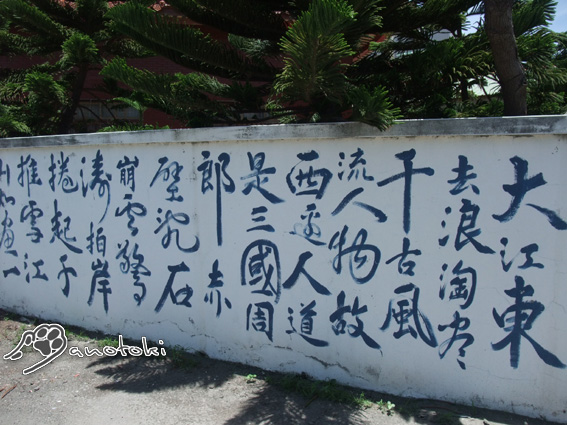 大江東
去浪淘尽
千古風
流人物故
西邊人道
是三國周
郎赤
壁亂石
崩雲驚
濤拍岸
捲起千
推雪江
山如畫一
anotoki